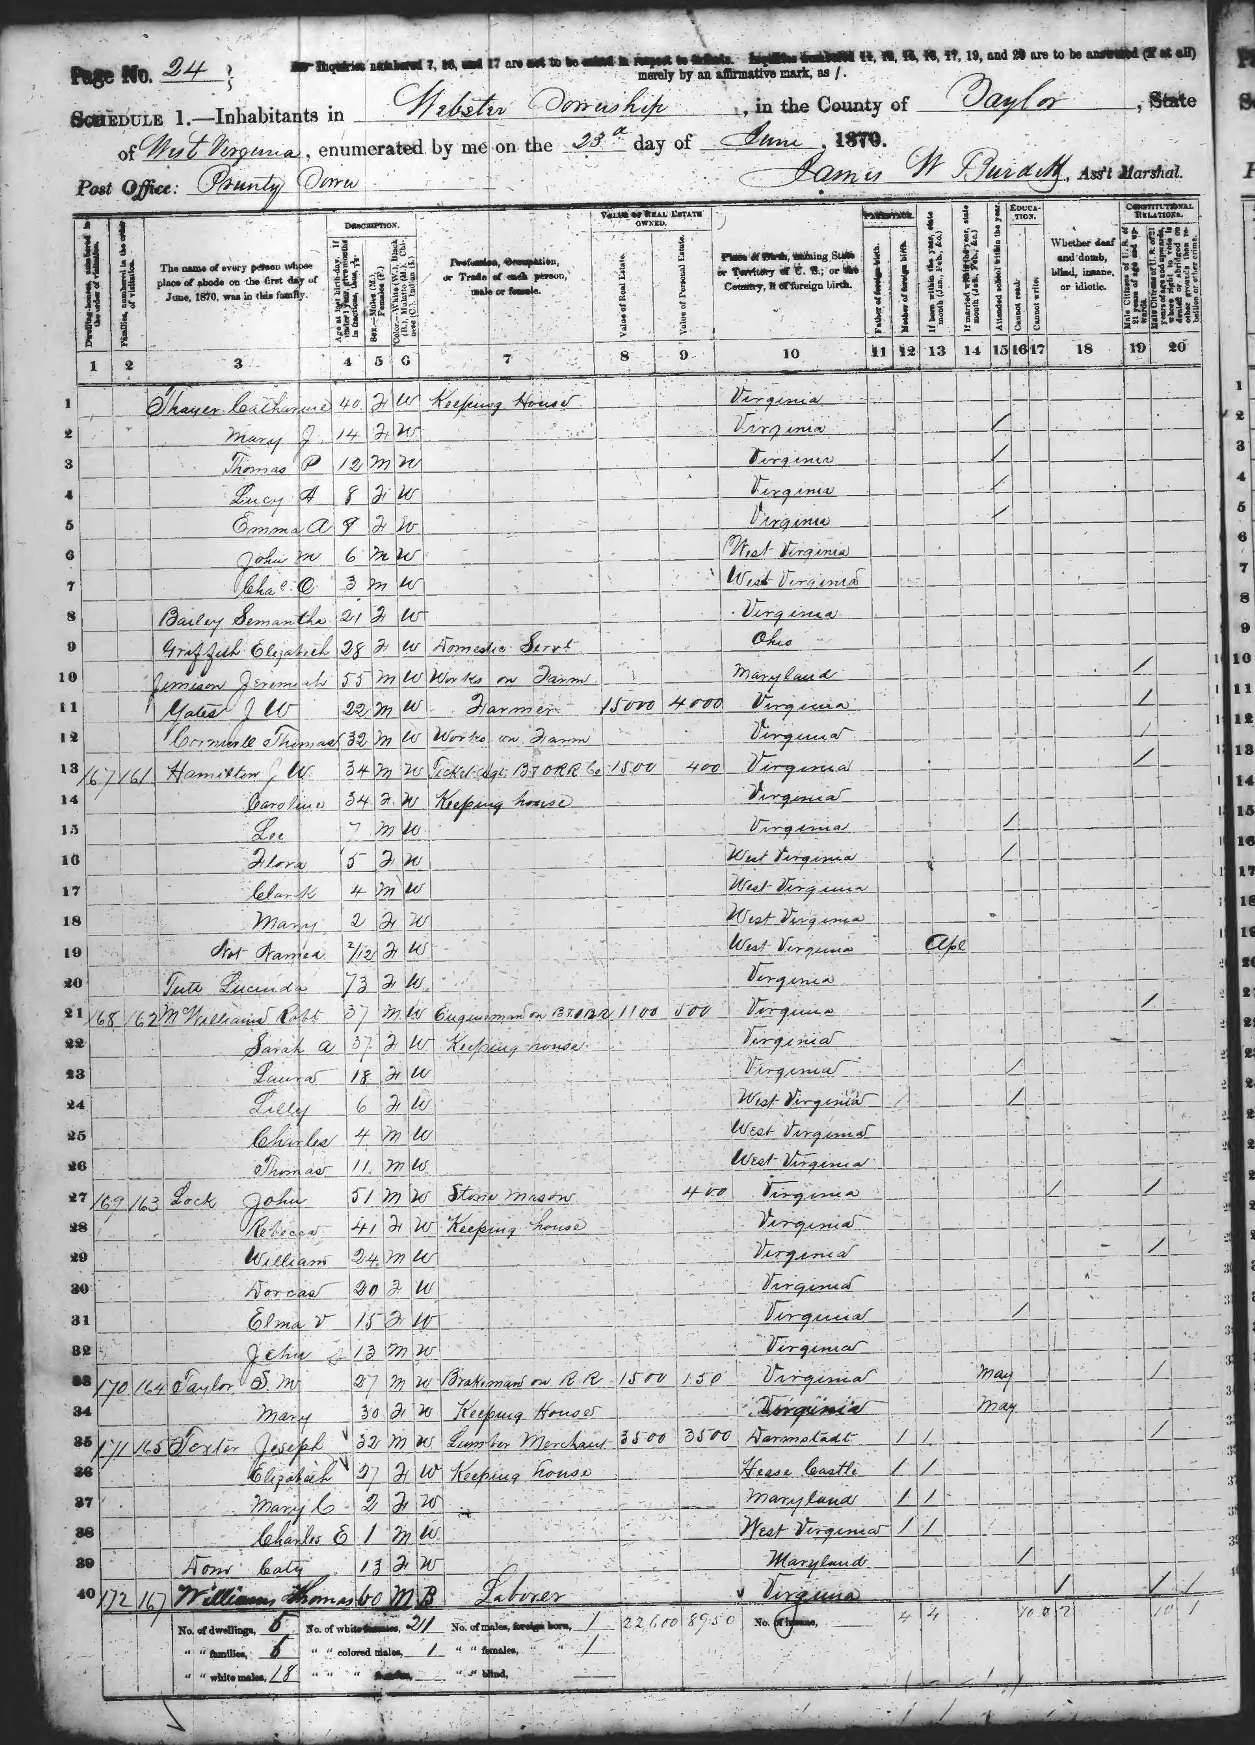 Page No. 24
Inquiries numbered 7, 16, and 17 are not to be asked in respect to infants. Inquiries numbered 11, 12, 15, 16, 17, 19, and 20 are to be answered (if at all)
merely by an affirmative mark, as /.
SCHEDULE 1.—Inhabitants in Webster Township, in the County of Taylor, State
of West Virginia, enumerated by me on the 23d day of June, 1870.
Post Office: Prunty Town James W Burdett, Ass't Marshal.
DESCRIPTION. VALUE OF REAL ESTATE OWNED. PARENTAGE. EDUCATION. CONSTITUTIONAL RELATIONS.
Dwelling-houses, numbered in the order of visitation.
Families, numbered in the order of visitation.
The name of every person whose place of abode on the first day of June, 1870, was in this family.
Age at last birth-day. If under 1 year, give months in fractions, thus, 3/12
Sex.—Males (M.), Females (F.)
Color.—White (W.), Black (B.), Mulatto (M.), Chinese (C.), Indian (I.)
Profession, Occupation, or Trade of each person, male or female.
Value of Real Estate.
Value of Personal Estate.
Place of Birth, naming State or Territory of U. S.; or the Country, if of foreign birth.
Father of foreign birth.
Mother of foreign birth.
If born within the year, state month (Jan., Feb., &c.)
If married within the year, state month (Jan., Feb., &c.)
Attended school within the year.
Cannot read.
Cannot write.
Whether deaf and dumb, blind, insane, or idiotic.
Male Citizens of U. S. of 21 years of age and upwards.
Male Citizens of U. S. of 21 years of age and upwards, whose right to vote is denied or abridged on other grounds than rebellion or other crime.
1 2 3 4 5 6 7 8 9 10 11 12 13 14 15 16 17 18 19 20
1 Thayer Catharine 40 F W Keeping House Virginia
2 Mary J 14 F W Virginia /
3 Thomas P 12 M W Virginia /
4 Lucy A 8 F W Virginia /
5 Emma A 9 F W Virginia /
6 John M 6 M W West Virginia
7 Chas. O 3 M W West Virginia
8 Bailey Semantha 21 F W Virginia
9 Griffith Elizabeth 28 F W Domestic Servt Ohio
10 Jimeson Jeremiah 55 M W Works on Farm Maryland /
11 Yates J W 22 M W Farmer 15000 4000 Virginia /
12 Thomas 32 M W Works on Farm Virginia /
13 167 161 Hamilton J W 34 M W Ticket Agt B & O RR Co 1500 400 Virginia /
14 Caroline 34 F W Keeping house Virginia
15 Lee 7 M W Virginia /
16 Flora 5 F W West Virginia /
17 Clark 4 M W West Virginia
18 Mary 2 F W West Virginia
19 Not Named 2/12 F W West Virginia Apl
20 Tutt Lucinda 73 F W Virginia
21 168 162 McWilliams Robt 37 M W Engineman on B & O RR 1100 500 Virginia /
22 Sarah A 37 F W Keeping house Virginia
23 Laura 18 F W Virginia /
24 Lilly 6 F W West Virginia /
25 Charles 4 M W West Virginia
26 Thomas 11 M W West Virginia
27 169 163 Lock John 51 M W Stone Mason 400 Virginia / /
28 Rebecca 41 F W Keeping house Virginia
29 William 24 M W Virginia /
30 Dorcas 20 F W Virginia
31 Elma V 15 F W Virginia /
32 John 13 M W Virginia
33 170 164 Taylor S. M 27 M W Brakeman on R R 1500 150 Virginia May /
34 Mary 30 F W Keeping House Virginia May
35 171 165 Foster Joseph 32 M W Lumber Merchant 3500 3500 Darmstadt / / /
36 Elizabeth 27 F W Keeping house Hesse Castle / /
37 Mary C 2 F W Maryland / /
38 Charles E 1 M W West Virginia / /
39 Caty 13 F W Maryland /
40 172 167 Williams Thomas 60 M B Laborer Virginia / / /
No. of dwellings, 5 No. of white females, 21 No. of males, foreign born, 1 22600 8950 No. of insane, 4 4 10 0 2 10 1
" " families, 6 " " colored males, 1 " " females, " " 1
" " white males, 18 " " " females, " " blind,